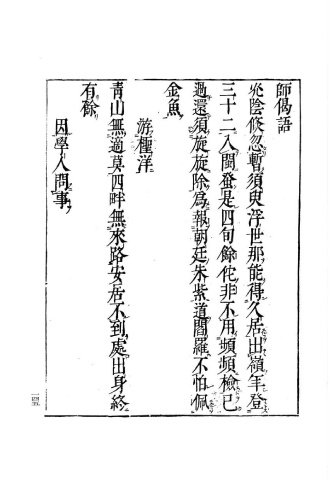 師偈語
光陰倏忽暫須臾浮世那能得久居出嶺年登
三十二入閩蚤是四旬餘佗非不用頻頻檢己
過還須旋旋除為報朝廷朱紫道閻羅不怕佩
金魚
游極洋
青山無適莫四畔無來路安居不到處出身終
有餘
因學人問事
一四五